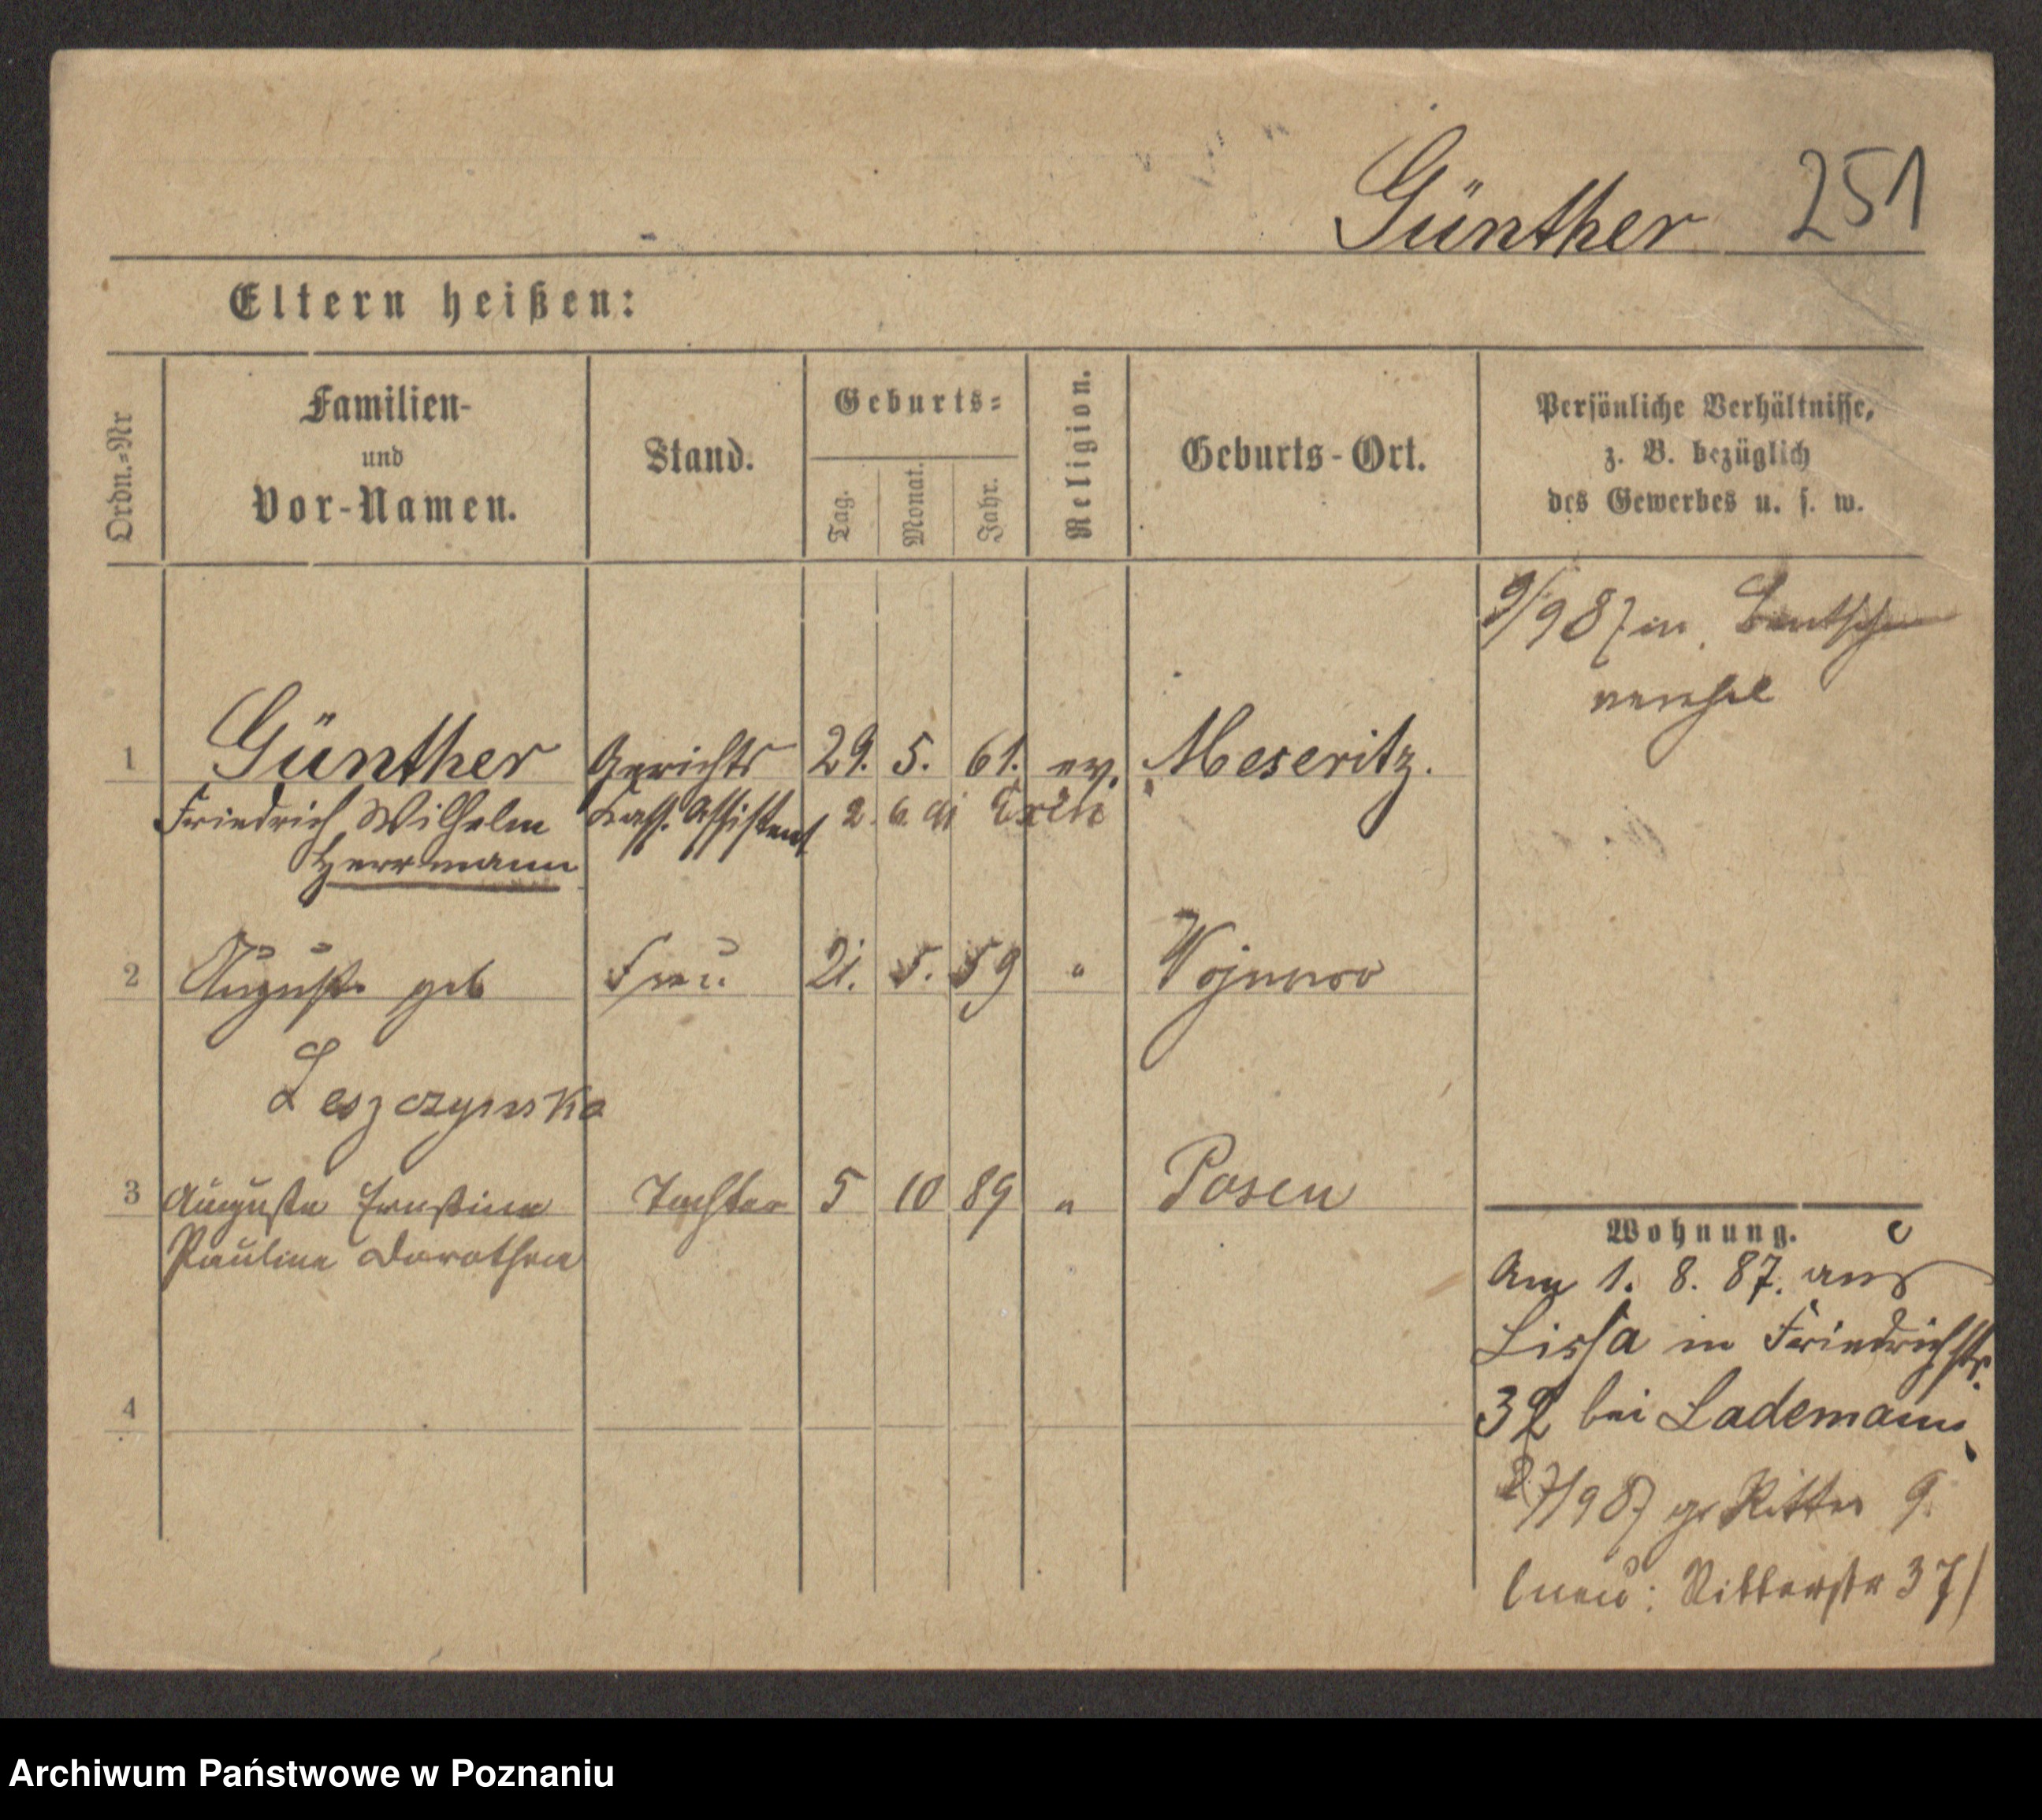 Günther 251
Eltern heißen:
Ordn.=Nr
Familien-
und
Vor-Namen.
Stand.
Geburts=
Tag.
Monat.
Jahr.
Religion.
Geburts-Ort.
Persönliche Verhältnisse,
z. B. bezüglich
des Gewerbes u. s. w.
9/9 87 in
1 Günther Gerichts 29. 5. 61. ev. Meseritz.
Friedrich Wilhelm Kass. Assistent 2. 6. 91 Exin
Herrmann
2 Auguste geb Frau 21. 5. 59 " Wojnowo
Leszczynska
3 Auguste Ernstine Tochter 5 10 89 " Posen
Pauline Dorothea
4
Wohnung.
Am 1. 8. 87. aus
Lissa in Friedrichstr.
32 bei Lademann
27/9 87 gr Ritter 9.
(neu: Ritterstr 37)
Archiwum Państwowe w Poznaniu